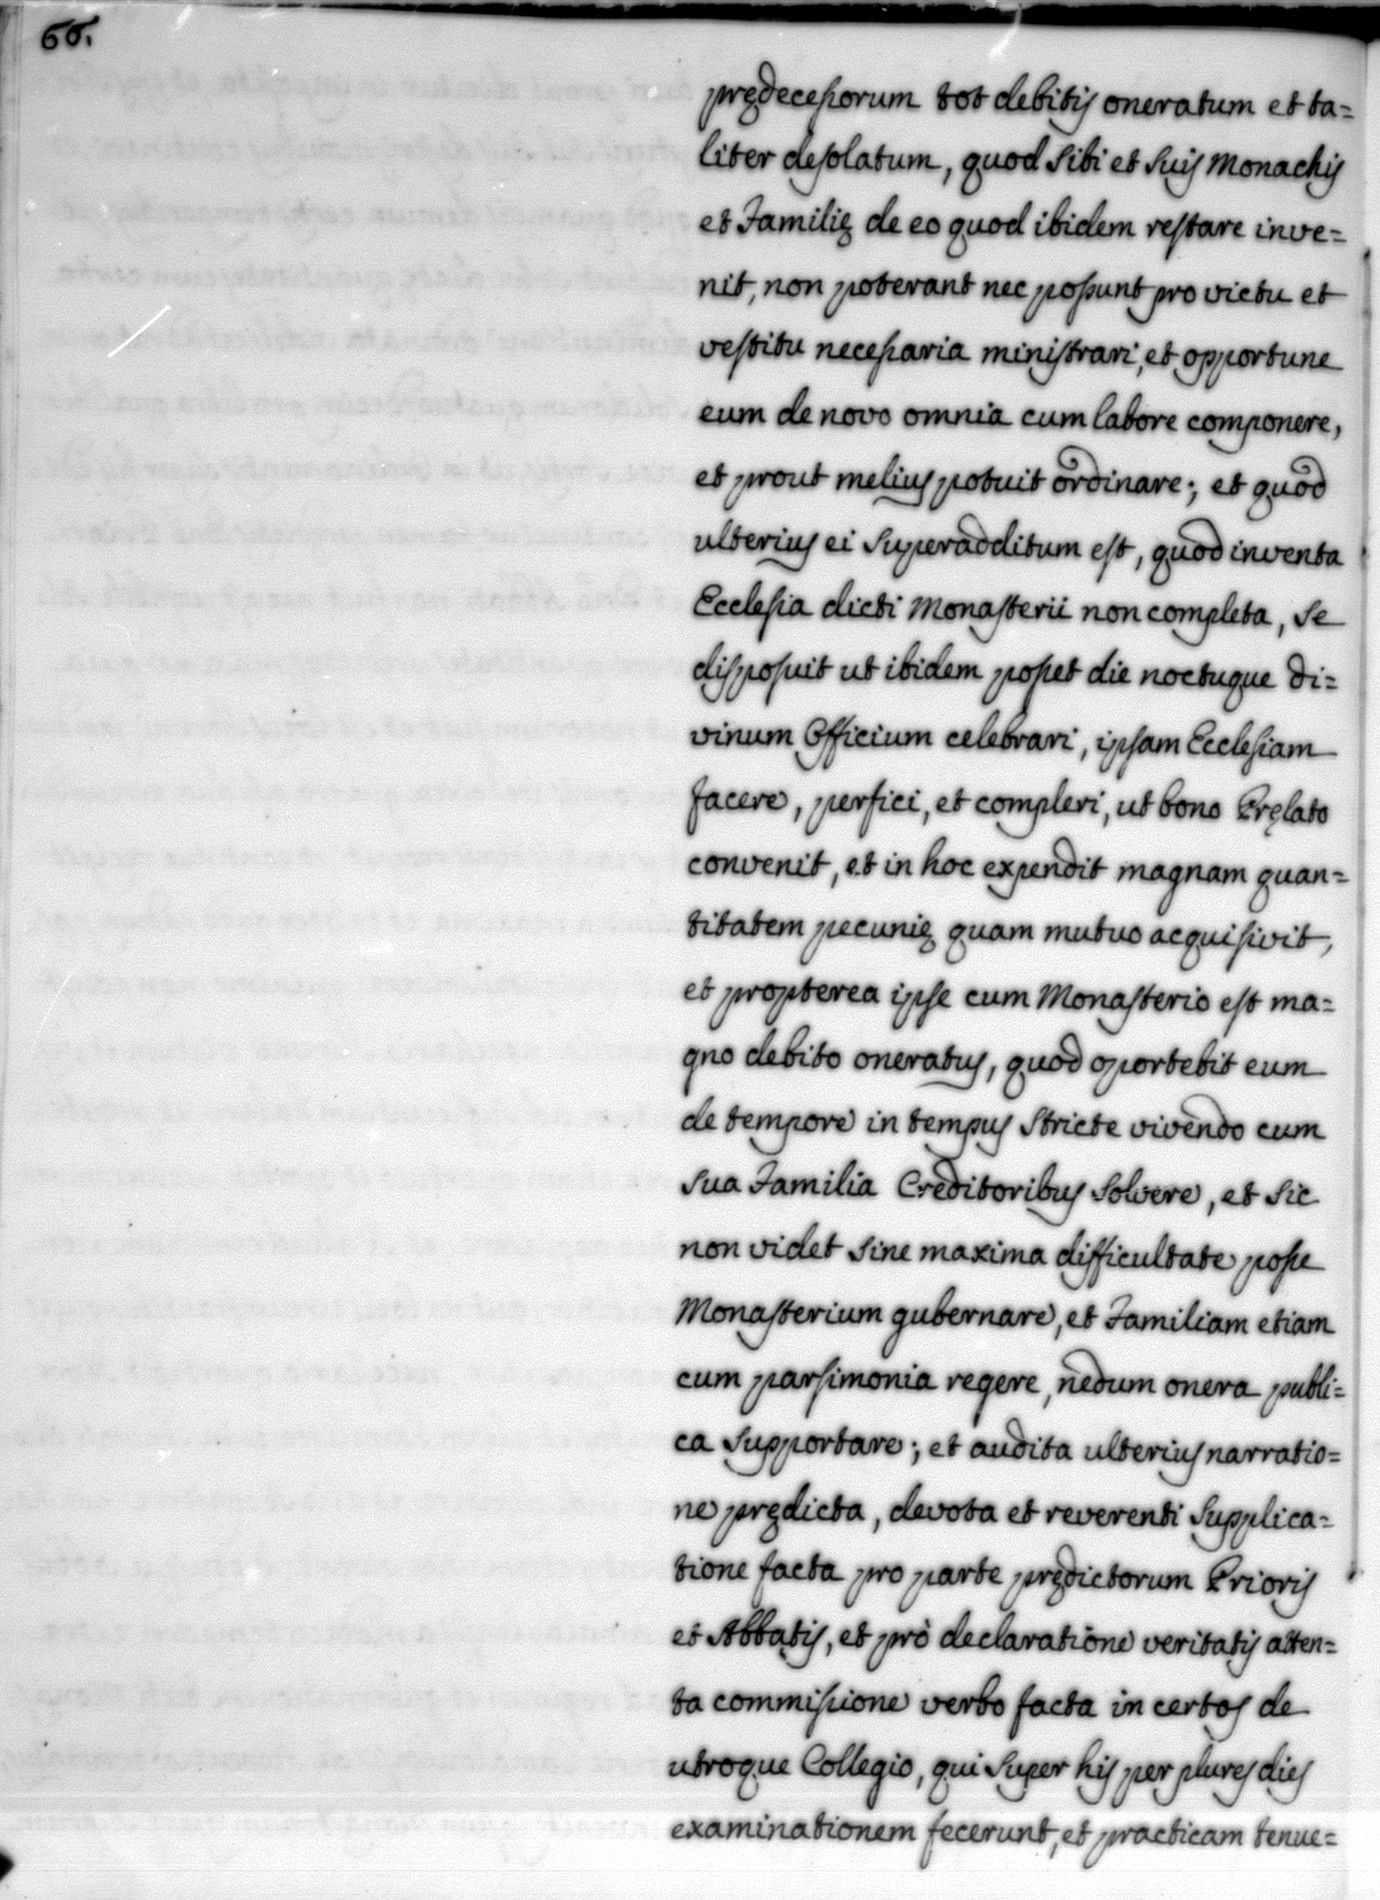 66.
prędecessorum tot debitis oneratum et ta=
liter desolatum, quod sibi et suis Monachis
et Familię de eo quod ibidem restare inve=
nit, non poterant nec possunt pro victu et
vestitu necessaria ministrari, et opportune
eum de novo omnia cum labore componere,
et prout melius potuit ordinare; et quod
ulterius ei superadditum est, quod inventa
Ecclesia dicti Monasterii non completa, se
disposuit ut ibidem posset die noctuque di=
vinum Officium celebrari, ipsam Ecclesiam
facere, perfici, et compleri, ut bono Pręlato
convenit, et in hoc expendit magnam quan=
titatem pecunię quam mutuo acquisivit,
et propterea ipse cum Monasterio est ma=
gno debito oneratus, quod oportebit eum
de tempore in tempus stricte vivendo cum
sua Familia Creditoribus solvere, et sic
non videt sine maxima difficultate posse
Monasterium gubernare, et Familiam etiam
cum parsimonia regere, nedum onera publi=
ca supportare; et audita ulterius narratio=
ne prędicta, devota et reverenti supplica=
tione facta pro parte prędictorum Prioris
et Abbatis, et prò declaratione veritatis atten=
ta commissione verbo facta in certos de
utroque Collegio, qui super his per plures dies
examinationem fecerunt, et practicam tenue=